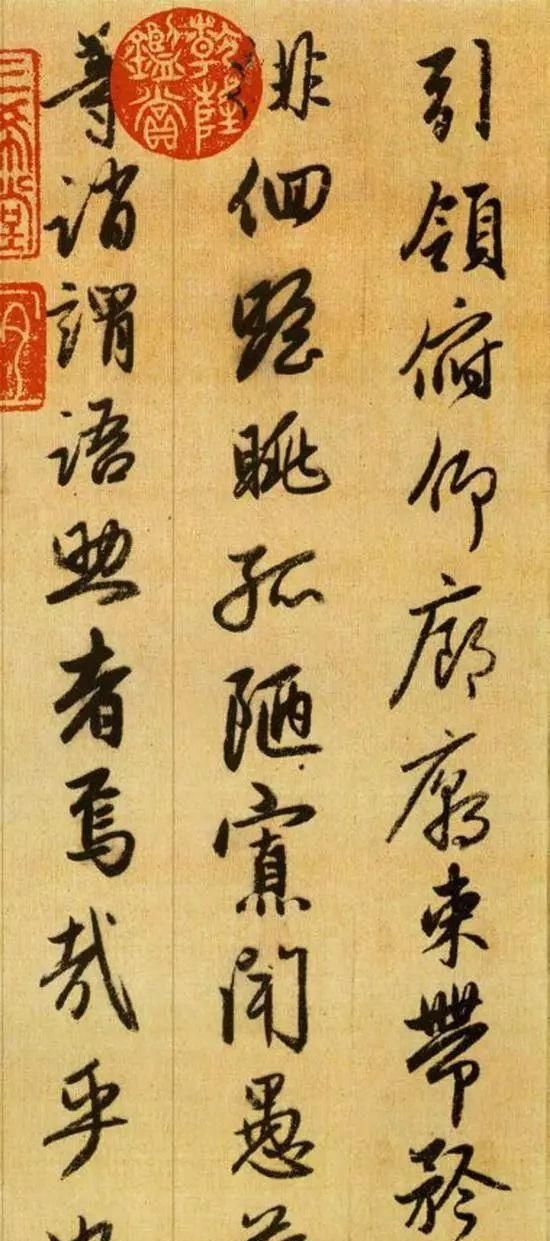 引領俯仰廊廟束帶矜
徘徊瞻眺孤陋寡聞愚蒙
等誚謂語助者焉哉乎也
乾隆鑑賞
三希堂